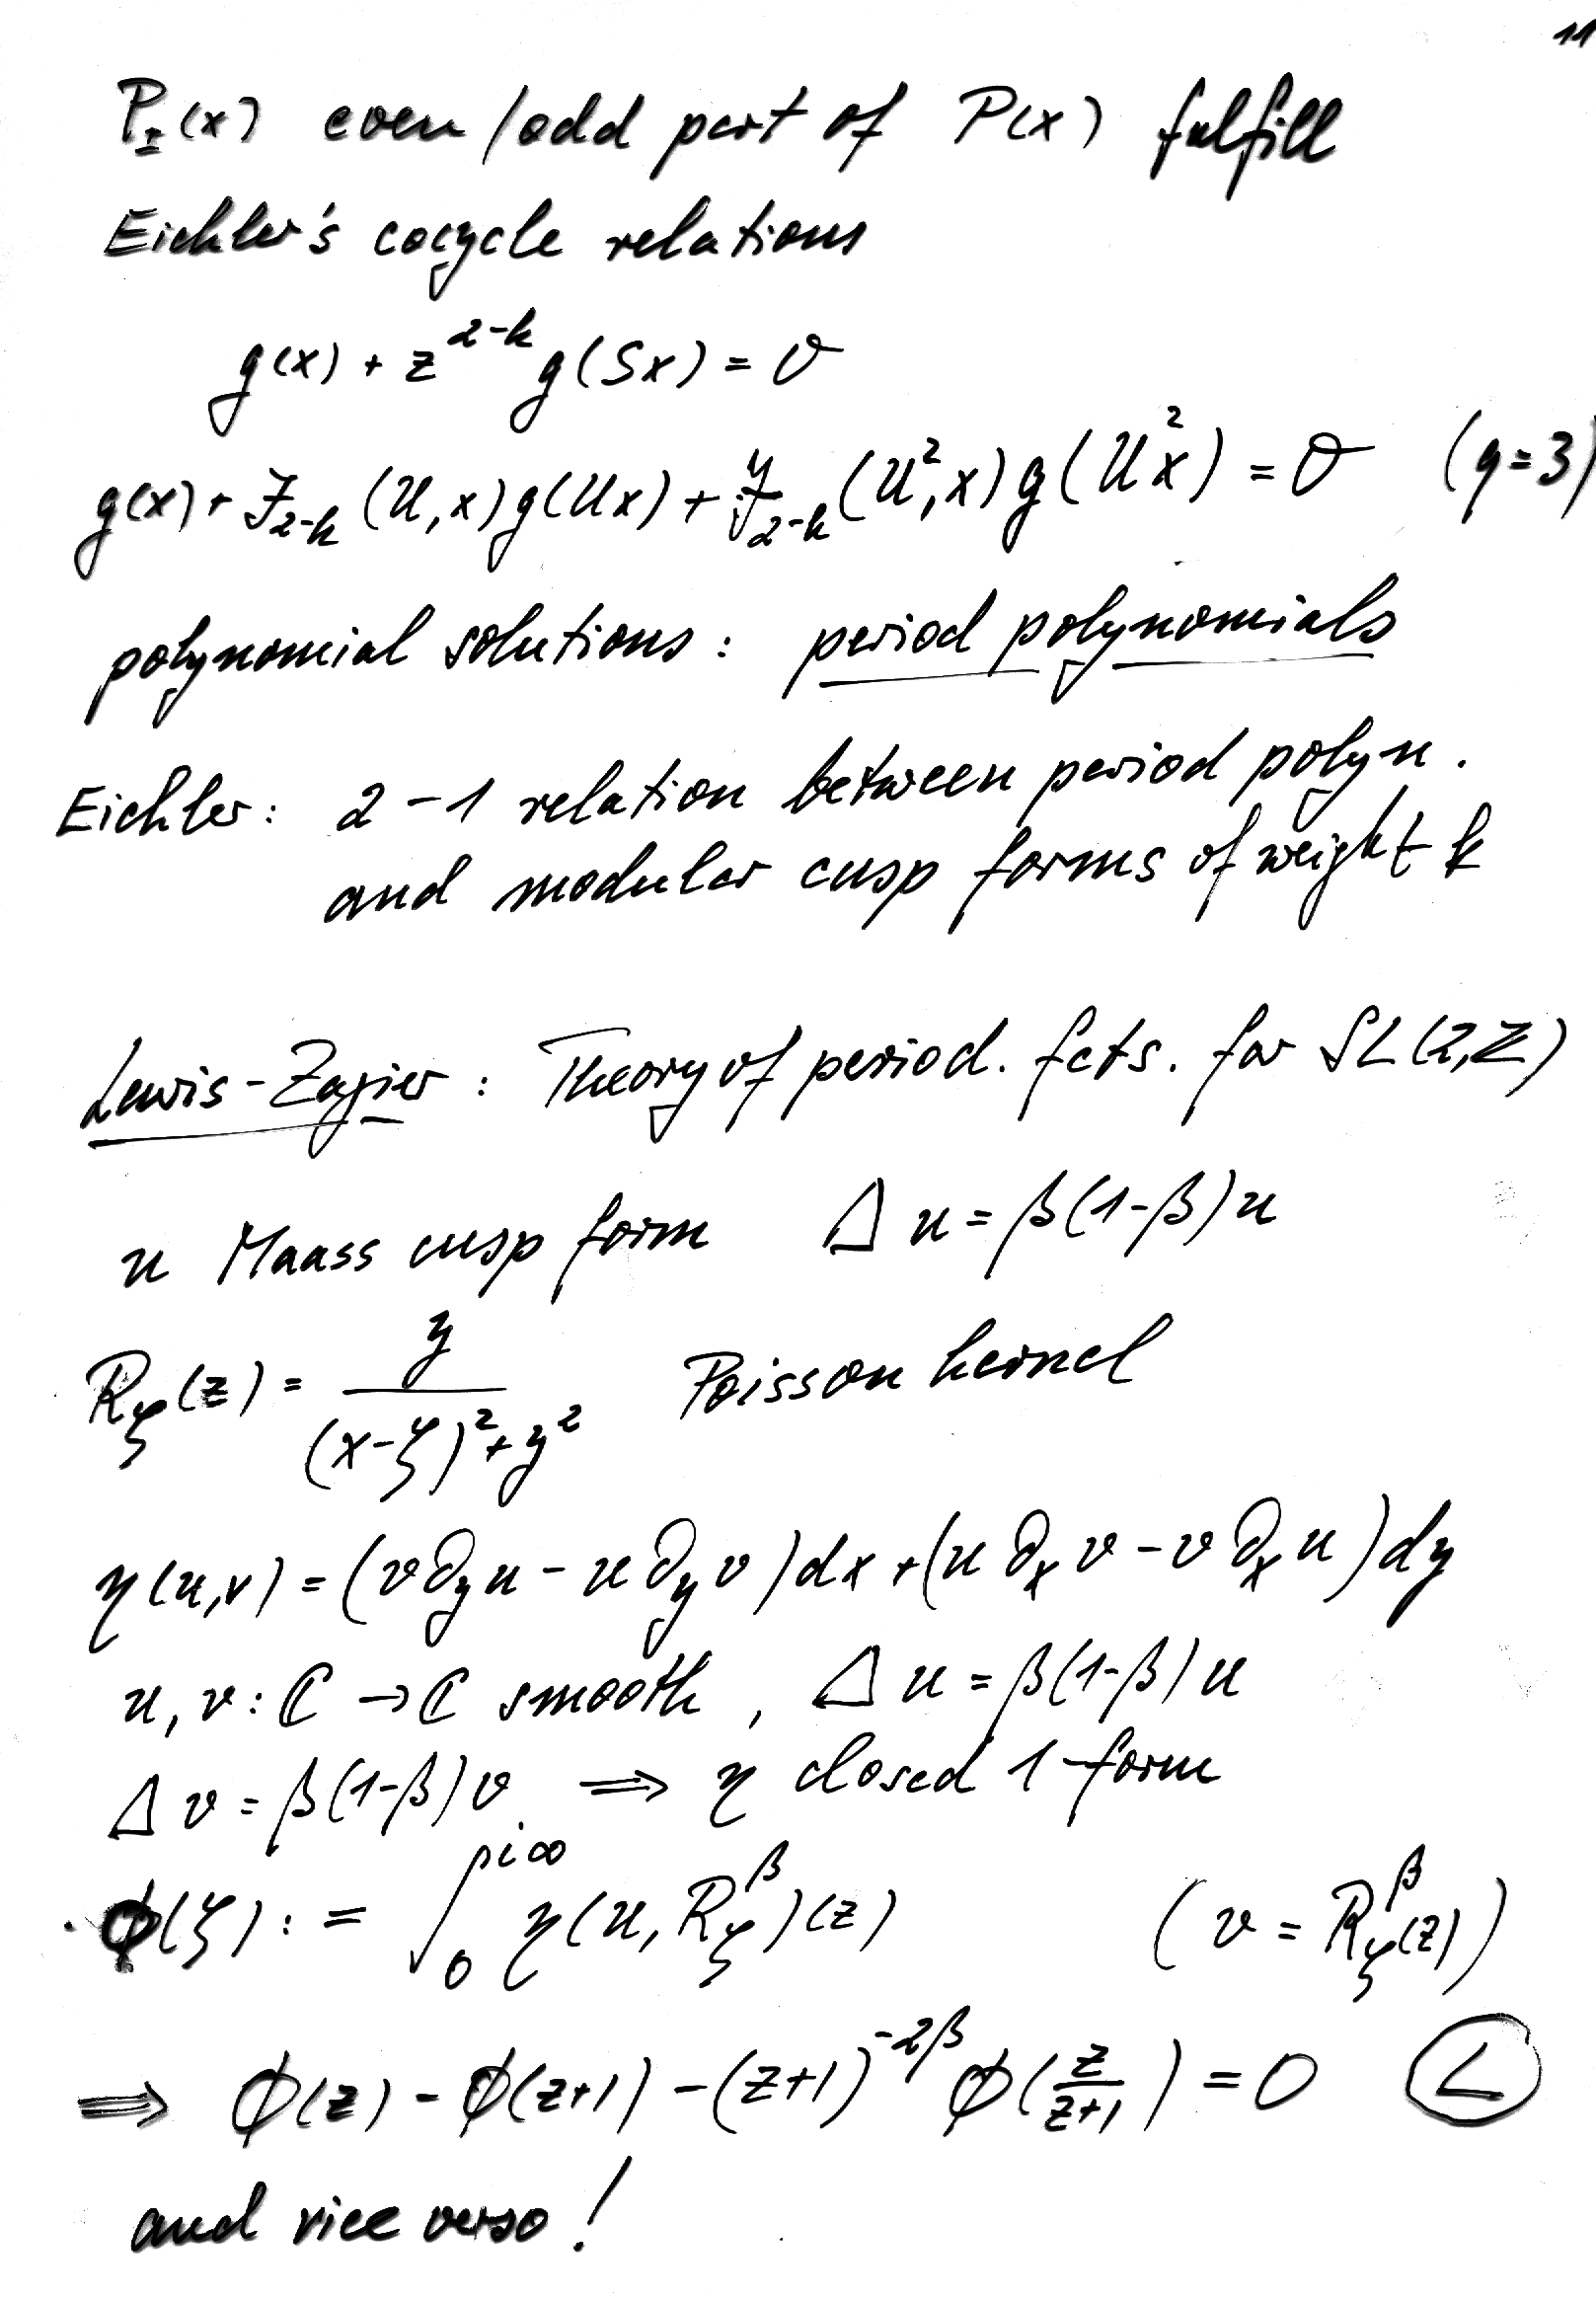 11
P_±(x) even/odd part of P(x) fulfill
Eichler's cocycle relations
g(x) + z^{2-k} g(Sx) = 0
g(x) + J_{2-k}(U,x) g(Ux) + J_{2-k}(U²,x) g(U²x) = 0 (q=3)
polynomial solutions: period polynomials
Eichler: 2-1 relation between period polyn.
and modular cusp forms of weight k
Lewis-Zagier: Theory of period. fcts. for SL(2,ℤ)
u Maass cusp form Δu = β(1-β)u
R_ζ(z) = y / ((x-ζ)² + y²) Poisson kernel
η(u,v) = (v∂_y u - u∂_y v)dx + (u∂_x v - v∂_x u)dy
u,v: ℂ → ℂ smooth, Δu = β(1-β)u
Δv = β(1-β)v ⟹ η closed 1-form
ϕ(ζ) := ∫_0^{i∞} η(u, R_ζ^β)(z) (v = R_ζ^β(z))
⟹ ϕ(z) - ϕ(z+1) - (z+1)^{-2β} ϕ(z/(z+1)) = 0 Ⓛ
and vice verso!